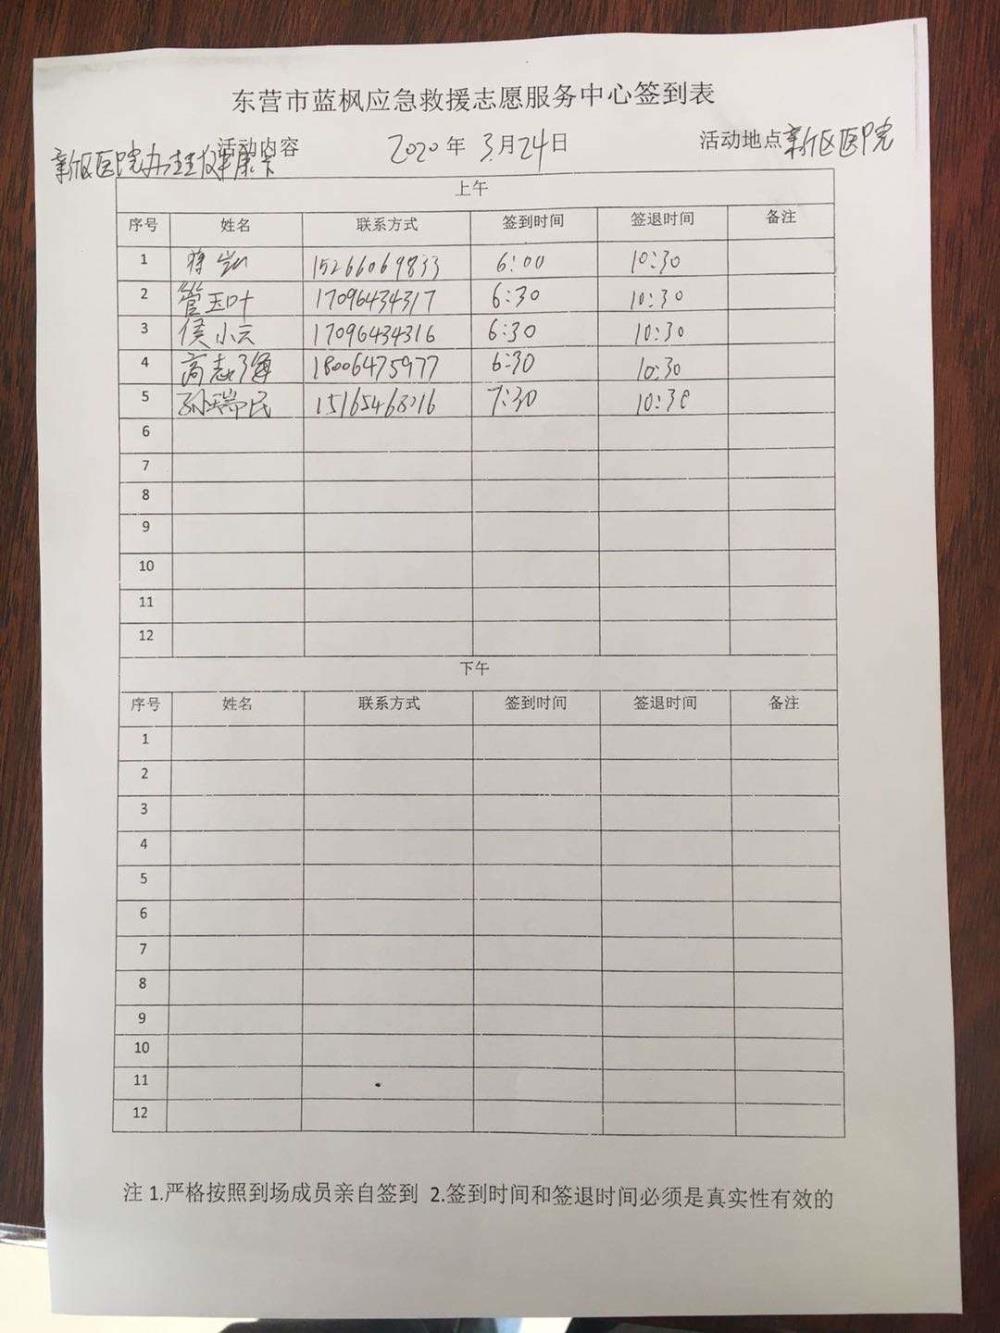 东营市蓝枫应急救援志愿服务中心签到表
活动内容 2020年 3月24日 活动地点 新区医院
新区医院办理健康卡
上午
序号 姓名 联系方式 签到时间 签退时间 备注
1 15266069833 6:00 10:30
2 管玉叶 17096434317 6:30 10:30
3 侯小云 17096434316 6:30 10:30
4 高志强 18006475977 6:30 10:30
5 孙瑞民 7:30 10:30
6
7
8
9
10
11
12
下午
序号 姓名 联系方式 签到时间 签退时间 备注
1
2
3
4
5
6
7
8
9
10
11
12
注 1.严格按照到场成员亲自签到 2.签到时间和签退时间必须是真实性有效的